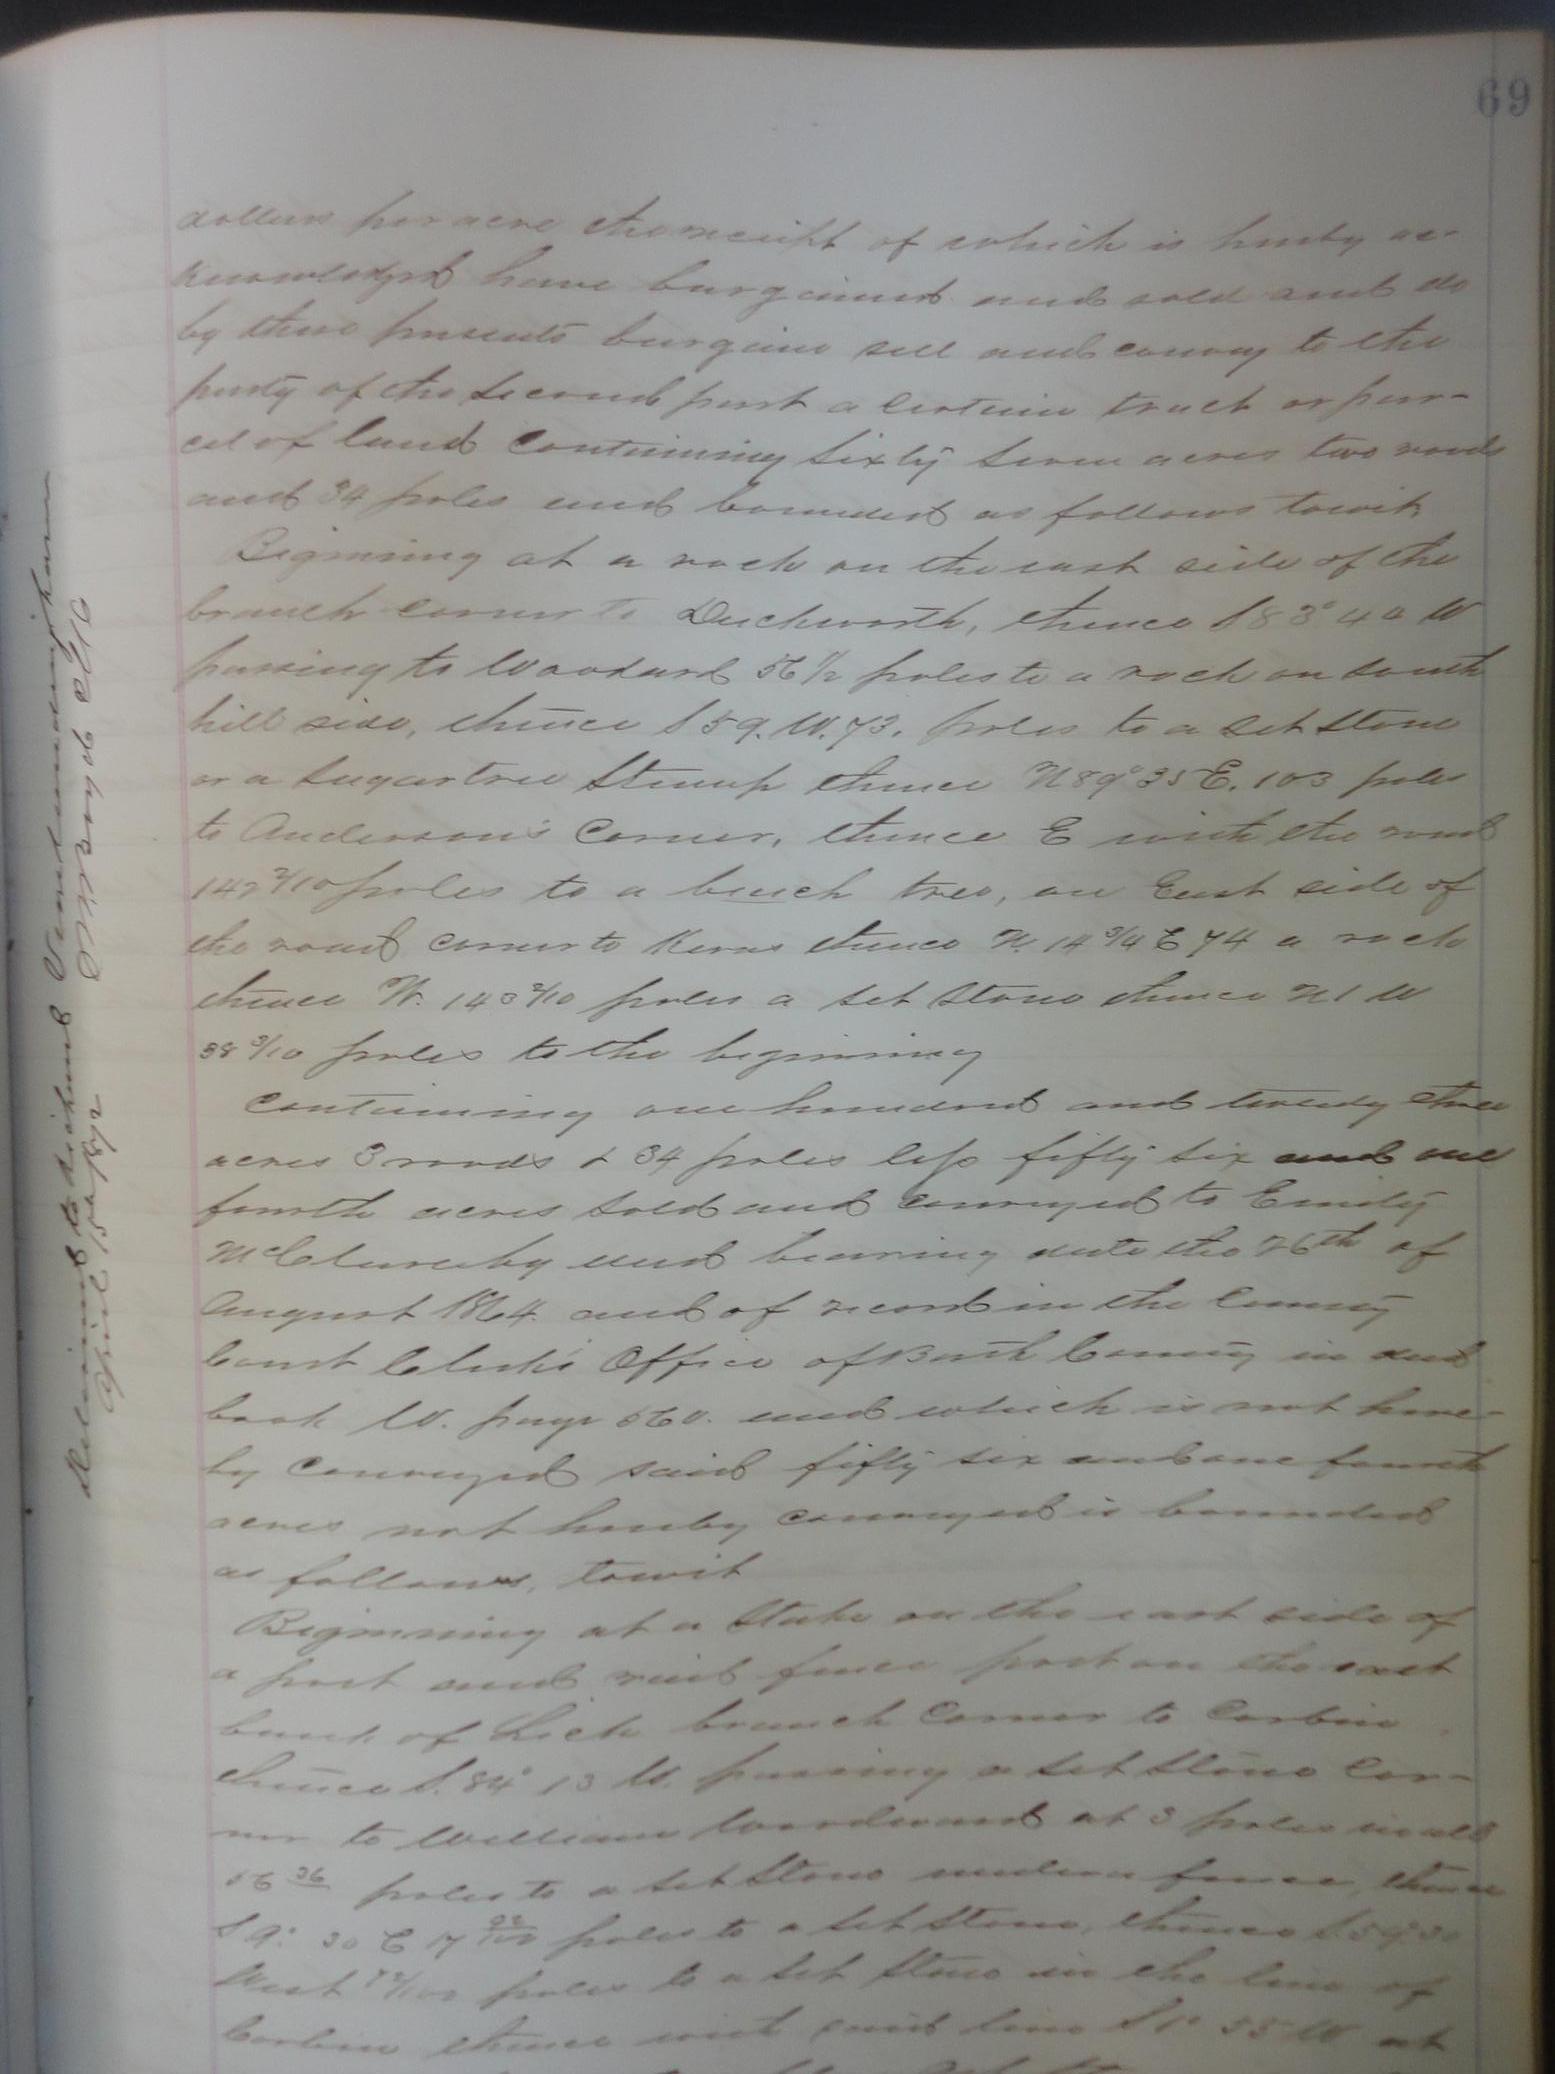 69
dollars per acre the receipt of which is hereby ac-
knowledged have bargained and sold and do
by these presents bargain sell and convey to the
party of the second part a certain tract or par-
cel of land containing sixty seven acres two roods
and 34 poles and bounded as follows towit
Beginning at a rock on the east side of the
branch corner to Duckworth, thence S 83° 40 W
passing to Woodard 56 1/2 poles to a rock on south
hill side, thence S 59. W. 73. poles to a set stone
or a sugartree stump thence N 89° 35 E. 103 poles
to Anderson's corner, thence E with the road
142 2/10 poles to a beach tree, on East side of
the road corner to Kerns thence N. 14 3/4 E 74 a rock
thence W. 143 2/10 poles a set stone thence N 1 W
38 3/10 poles to the beginning
Containing one hundred and twenty three
acres 3 roods & 34 poles less fifty six and one
fourth acres sold and conveyed to Emily
McClure by deed bearing date the 26th of
August 1864. and of record in the County
Court Clerks Office of Bath County in deed
book W. page 560. and which is not here-
by conveyed said fifty six and one fourth
acres not hereby conveyed is bounded
as follows, towit
Beginning at a stake on the east side of
a post and rail fence post on the east
bank of Lick branch corner to Corbin
thence S. 84° 13 W. passing a set stone cor-
ner to William Woodward at 3 poles in all
56 36 poles to a set stone under a fence, thence
S 9° 30 E 17 poles to a set stone, thence S. 59° 30
West poles to a set stone in the line of
Corbin thence with said line S 1° 55 W at
Delivered to Richard
April 15th 1872